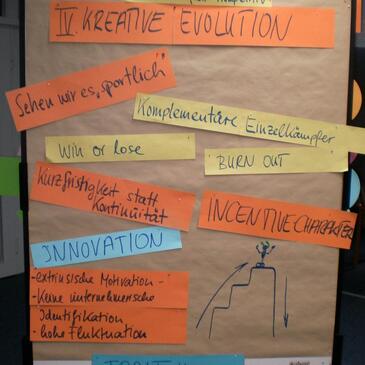 IV. KREATIVE EVOLUTION
Sehen wir es „sportlich"
Komplementäre Einzelkämpfer
Win or lose
BURN OUT
Kurzfristigkeit statt
Kontinuität
INCENTIVECHARAKTER
INNOVATION
- extrinsische Motivation -
- Keine unternehmerische
Identifikation
- hohe Fluktuation